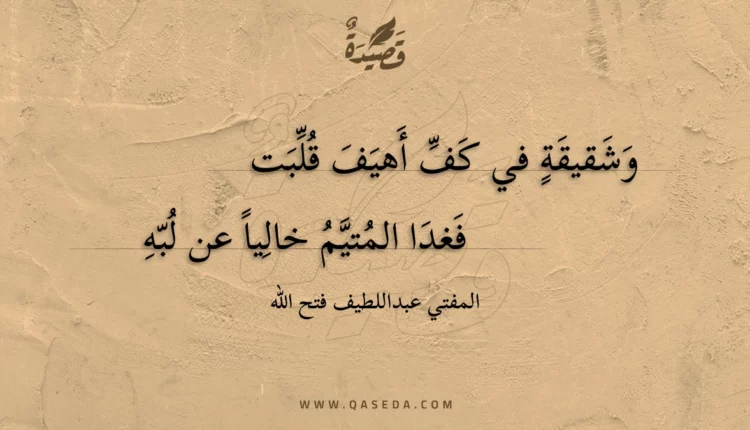 قَصِيْدَةٌ
وَشَقيقَةٍ في كَفِّ أَهيَفَ قُلِّبَت
فَغدَا المُتيَّمُ خالِياً عن لُبّهِ
المفتي عبداللطيف فتح الله
WWW.QASEDA.COM